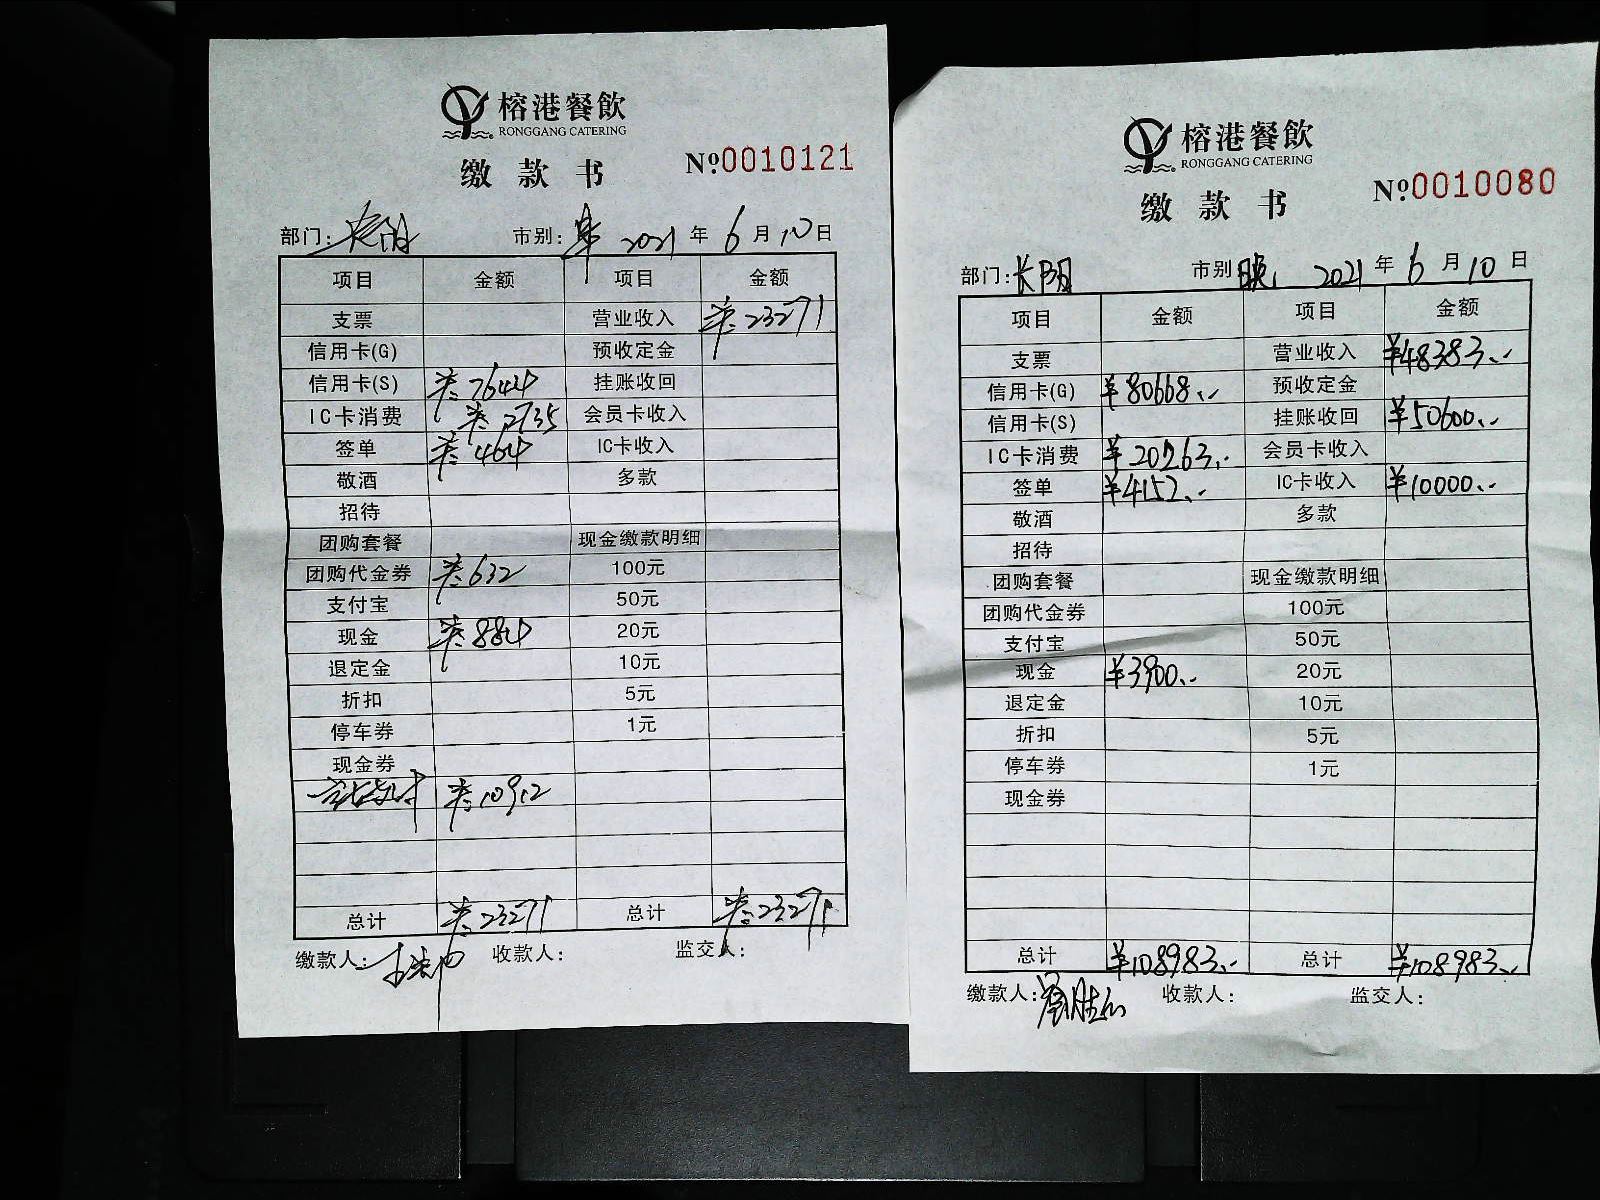 榕港餐飲
RONGGANG CATERING
缴款书 №0010121
部门: 长阳 市别: 早 2021年6月10日
项目 金额 项目 金额
支票 营业收入 ¥:23271
信用卡(G) 预收定金
信用卡(S) ¥:7644 挂账收回
IC卡消费 ¥:2735 会员卡收入
签单 ¥:464 IC卡收入
敬酒 多款
招待
团购套餐 现金缴款明细
团购代金券 ¥:632 100元
支付宝 50元
现金 ¥:884 20元
退定金 10元
折扣 5元
停车券 1元
现金券
¥:10912
总计 ¥:23271 总计 ¥:23271
缴款人: 收款人: 监交人:
榕港餐飲
RONGGANG CATERING
缴款书 №0010080
部门: 长阳 市别 晚 2021年6月10日
项目 金额 项目 金额
支票 营业收入 ¥48383.-
信用卡(G) ¥80668.- 预收定金
信用卡(S) 挂账收回 ¥50600.-
IC卡消费 ¥20263.- 会员卡收入
签单 ¥4152.- IC卡收入 ¥10000.-
敬酒 多款
招待
团购套餐 现金缴款明细
团购代金券 100元
支付宝 50元
现金 ¥3900.- 20元
退定金 10元
折扣 5元
停车券 1元
现金券
总计 ¥108983.- 总计 ¥108983.-
缴款人: 收款人: 监交人: